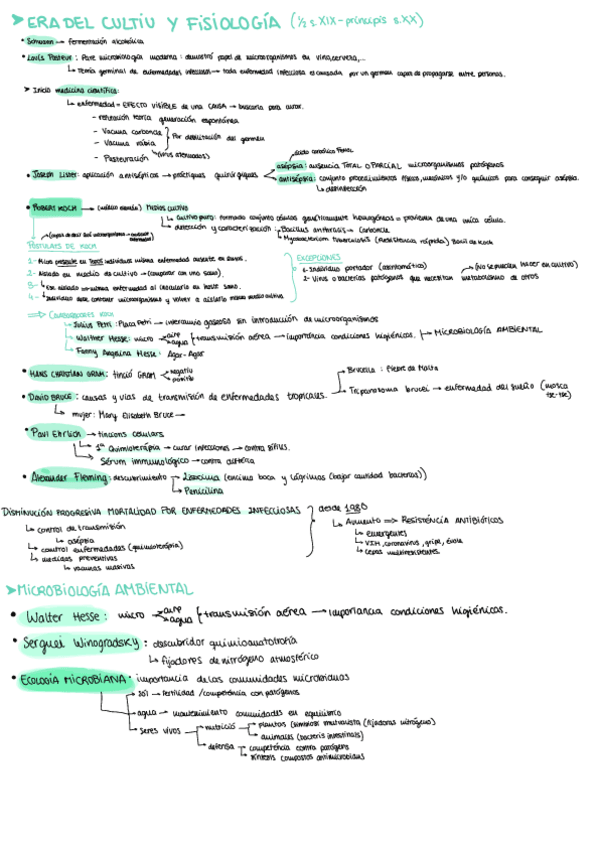 ➤ ERA DEL CULTIU Y FISIOLOGÍA (½ s.XIX-principis s.XX)
• Schwann → fermentación alcohólica
• Louis Pasteur: Pare microbiología moderna: demostró papel de microorganismos en vino, cerveza,...
↳ Teoría germinal de enfermedades infecciosas → toda enfermedad infecciosa es causada por un germen capaz de propagarse entre personas.
➤ Inicio medicina científica:
↳ enfermedad = EFECTO VISIBLE de una CAUSA → buscarla para curar.
- refutación teoría generación espontánea
- Vacuna carbunclo
- Vacuna rabia
} Por debilitación del germen
- Pasteurización (virus atenuados)
• Joseph Lister: aplicación antisépticos → pràctiques quirúrgiques
ácido carbólico Fenol
asèpsia: ausencia TOTAL O PARCIAL microorganismos patógenos
antisèpsia: conjunto procedimientos físicos, mecánicos y/o químicos para conseguir asepsia.
↳ desinfección
• ROBERT KOCH → (médico alemán) Medios cultivo
↳ cultivo puro: formado conjunto células genéticamente homogéneas = proviene de una única célula.
↳ detección y caracterización: Bacillus anthracis → Carbunclo
↳ Mycobacterium tuberculosis (resistencia rápida) Bacil de Koch
POSTULADOS DE KOCH
1- Micro presente en TODOS individuos misma enfermedad ausente en sanos.
2- Aislado en medio de cultivo → (comparar con uno sano).
3- Ese aislado → misma enfermedad al inocularla en huésped sano.
4- Individuo debe contener microorganismo y volver a aislarlo mismo medio cultivo
EXCEPCIONES
1- Individuo portador (asintomático)
2- Virus o bacterias patógenos que necesitan metabolismo de otros
(No se pueden hacer en cultivo)
⇒ COLABORADORES KOCH
↳ Julius Petri: Placa Petri → intercambio gaseoso sin introducción de microorganismos
↳ Walther Hesse: micro aire agua { transmisión aérea → importancia condiciones higiénicas. → MICROBIOLOGÍA AMBIENTAL
↳ Fanny Angelina Hesse: Agar-Agar
• HANS CHRISTIAN GRAM: tinció GRAM negatiu positiu
• DAVID BRUCE: causas y vías de transmisión de enfermedades tropicales.
Brucella: Fiebre de Malta
Trypanosoma brucei → enfermedad del sueño (mosca tse-tse)
↳ mujer: Mary Elisabeth Bruce
• Paul Ehrlich → tincions celulars
↳ 1ª Quimioterapia → curar infecciones → contra sífilis.
↳ Sérum immunológico → contra difteria
• Alexander Fleming: descubrimiento
Lisozima (enzima boca y lágrimas (bajar cantidad bacterias))
Penicilina
DISMINUCIÓN PROGRESIVA MORTALIDAD POR ENFERMEDADES INFECCIOSAS
↳ control de transmisión
↳ asèpsia
↳ control enfermedades (quimioterapia)
↳ medidas preventivas
↳ vacunas masivas
desde 1980
↳ Aumento ⇒ RESISTÈNCIA ANTIBIÓTICOS
↳ emergentes
↳ VIH, coronavirus, gripe, ébola
↳ Cepas multirresistentes
➤ MICROBIOLOGÍA AMBIENTAL
• Walter Hesse: micro aire agua { transmisión aérea → importancia condiciones higiénicas.
• Serguei Winogradsky: descubridor quimioautotrofia
↳ fijadores de nitrógeno atmosférico
• ECOLOGÍA MICROBIANA: importancia de las comunidades microbianas
→ sòl → fertilidad / competencia con patógenos
→ agua → mantenimiento comunidades en equilibrio
→ seres vivos
nutrició
→ plantas (simbiosi mutualista (fijadoras nitrógeno)
→ animales (bacteris intestinals)
defensa
→ competencia contra patógens
→ síntesis compostos antimicrobians